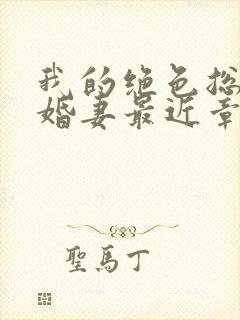 我的绝色总
婚妻最近章
聖馬丁